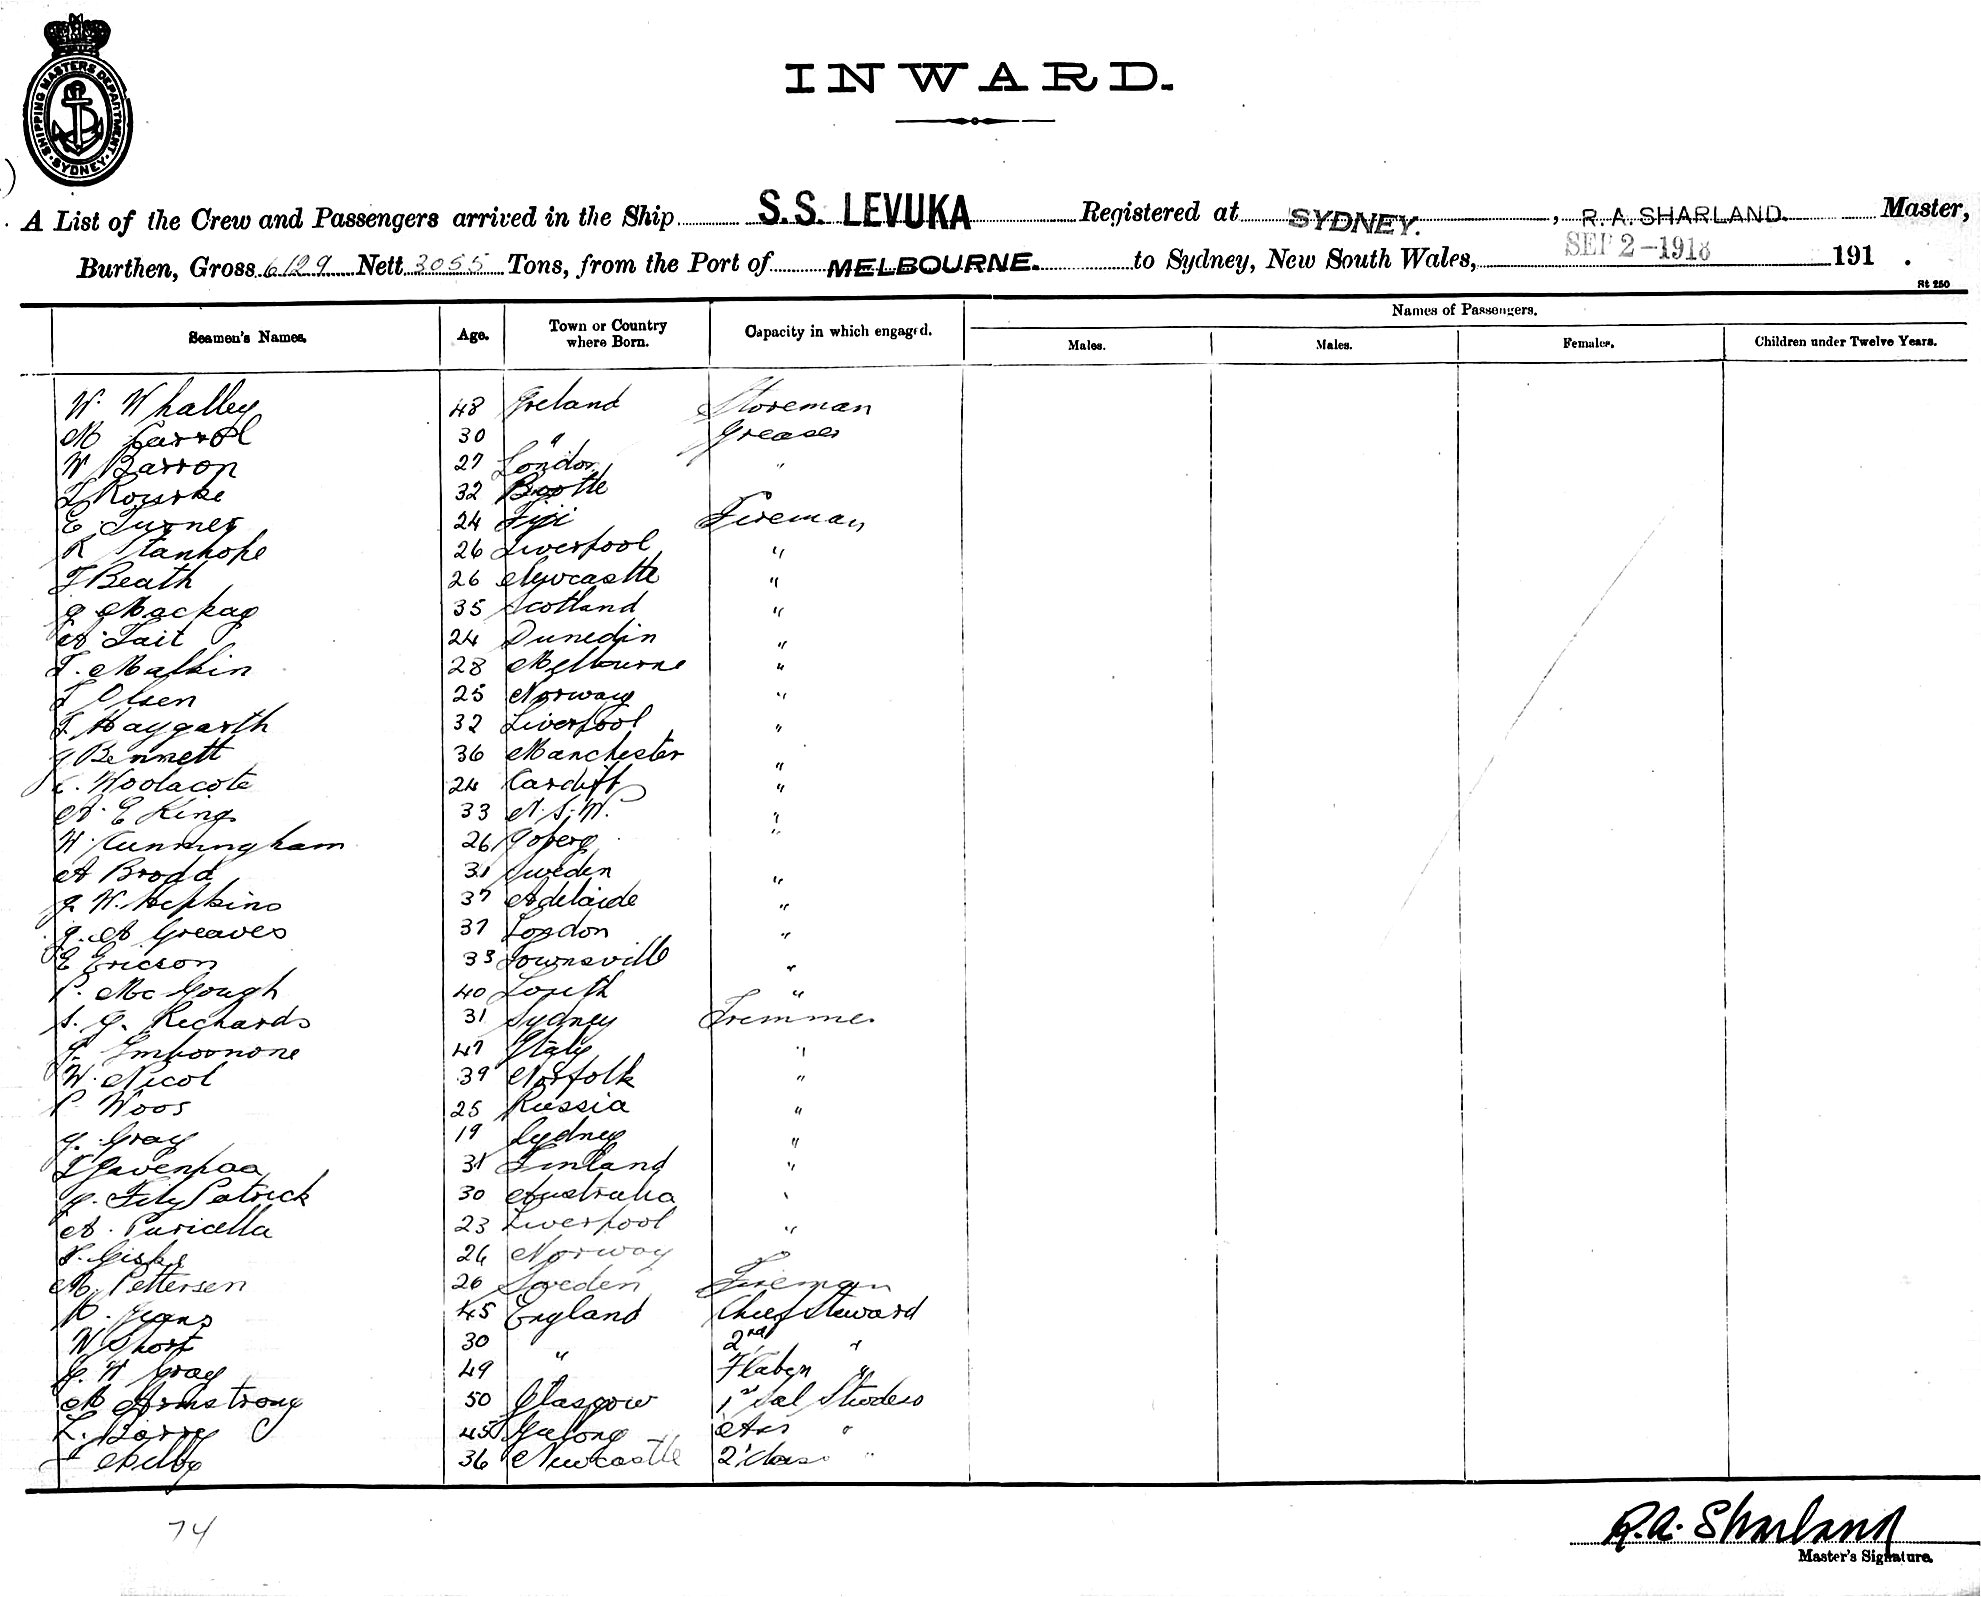 SHIPPING MASTERS DEPARTMENT SYDNEY
INWARD.
A List of the Crew and Passengers arrived in the Ship S.S. LEVUKA Registered at SYDNEY. , R. A. SHARLAND. Master,
Burthen, Gross 6129 Nett 3055 Tons, from the Port of MELBOURNE. to Sydney, New South Wales, SEP 2-1918 191 .
St 250
Seamen's Names. Age. Town or Country where Born. Capacity in which engaged. Names of Passengers.
Males. Males. Females. Children under Twelve Years.
W. Whalley 48 Ireland Storeman
M Carrol 30 " Greaser
W Barron 27 London "
Rourke 32 Bootle
E. Turner 24 Fiji Fireman
R Stanhope 26 Liverpool "
Beath 26 Newcastle "
Mackay 35 Scotland "
A. Tait 24 Dunedin "
Malkin 28 Melbourne "
Olsen 25 Norway "
Haygarth 32 Liverpool "
Bennett 36 Manchester "
Woolacote 24 Cardiff "
A. E King 33 N.S.W. "
W. Cunningham 26 "
A Brodd 31 Sweden "
W. Hopkins 37 Adelaide "
A Greaves 37 London "
E Ericson 33 Townsville "
P. McGough 40 Louth "
S. G. Richards 31 Sydney Trimmer
47 Italy "
W. Nicol 39 Norfolk "
P. Woos 25 Russia "
G. Gray 19 Sydney "
31 Finland "
FitzPatrick 30 Australia "
A. Puricella 23 Liverpool "
26 Norway
M. Pettersen 26 Sweden Fireman
Jeans 45 England Chief Steward
W Short 30 2nd "
W Gray 49 " "
Armstrong 50 Glasgow 1st Sal
L. Barry 45 Geelong "
Selby 36 Newcastle 2 class "
74
R.A. Sharland
Master's Signature.